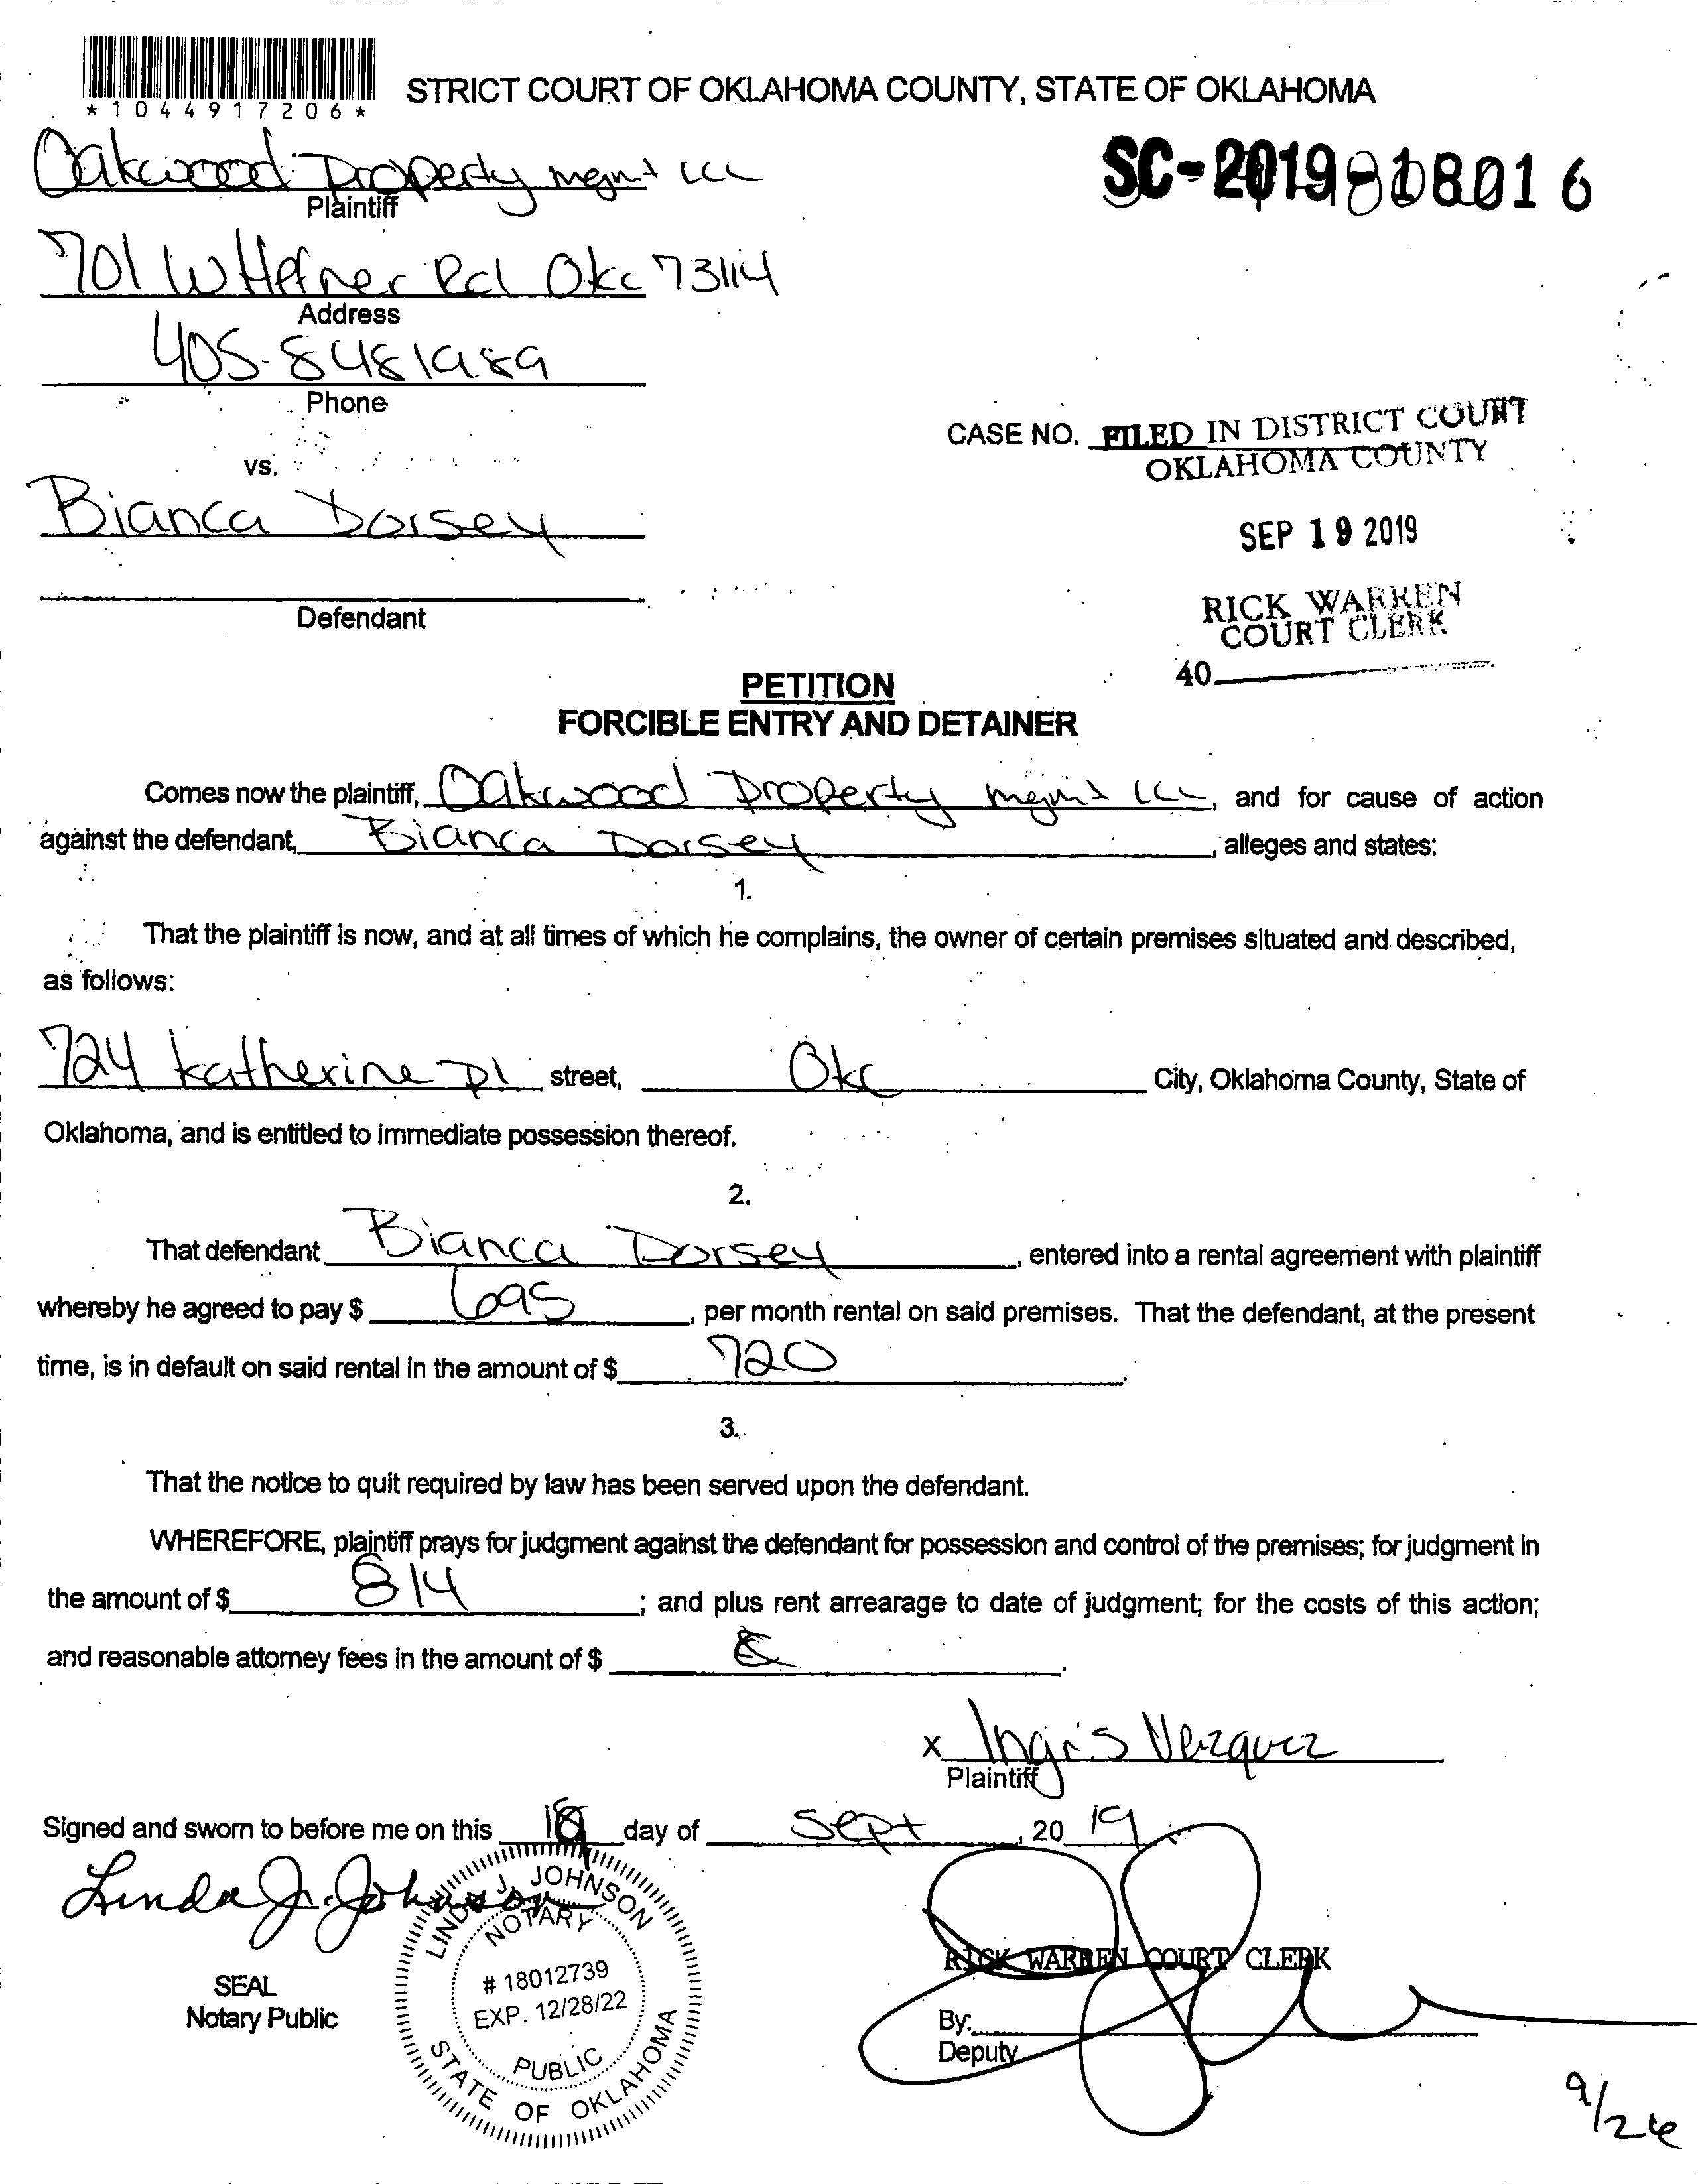 *1044917206*
STRICT COURT OF OKLAHOMA COUNTY, STATE OF OKLAHOMA
Oakwood Property mgmt LLC
Plaintiff
SC-2019 18016
701 W Hefner Rd Okc 73114
Address
405-8481989
Phone
CASE NO. FILED IN DISTRICT COURT
OKLAHOMA COUNTY
vs.
Bianca Dorsey
SEP 19 2019
Defendant
RICK WARREN
COURT CLERK
40
PETITION
FORCIBLE ENTRY AND DETAINER
Comes now the plaintiff, Oakwood Property mgmt LLC, and for cause of action
against the defendant, Bianca Dorsey, alleges and states:
1.
That the plaintiff is now, and at all times of which he complains, the owner of certain premises situated and described,
as follows:
724 Katherine Pl street, Okc City, Oklahoma County, State of
Oklahoma, and is entitled to immediate possession thereof.
2.
That defendant Bianca Dorsey, entered into a rental agreement with plaintiff
whereby he agreed to pay $ 695, per month rental on said premises. That the defendant, at the present
time, is in default on said rental in the amount of $ 720.
3.
That the notice to quit required by law has been served upon the defendant.
WHEREFORE, plaintiff prays for judgment against the defendant for possession and control of the premises; for judgment in
the amount of $ 814; and plus rent arrearage to date of judgment; for the costs of this action;
and reasonable attorney fees in the amount of $ .
x Ingris Vezquez
Plaintiff
Signed and sworn to before me on this day of Sept, 20 19
Linda J. Johnson
LINDA J. JOHNSON
NOTARY
# 18012739
EXP. 12/28/22
PUBLIC
STATE OF OKLAHOMA
SEAL
Notary Public
RICK WARREN COURT CLERK
By:
Deputy
9/26